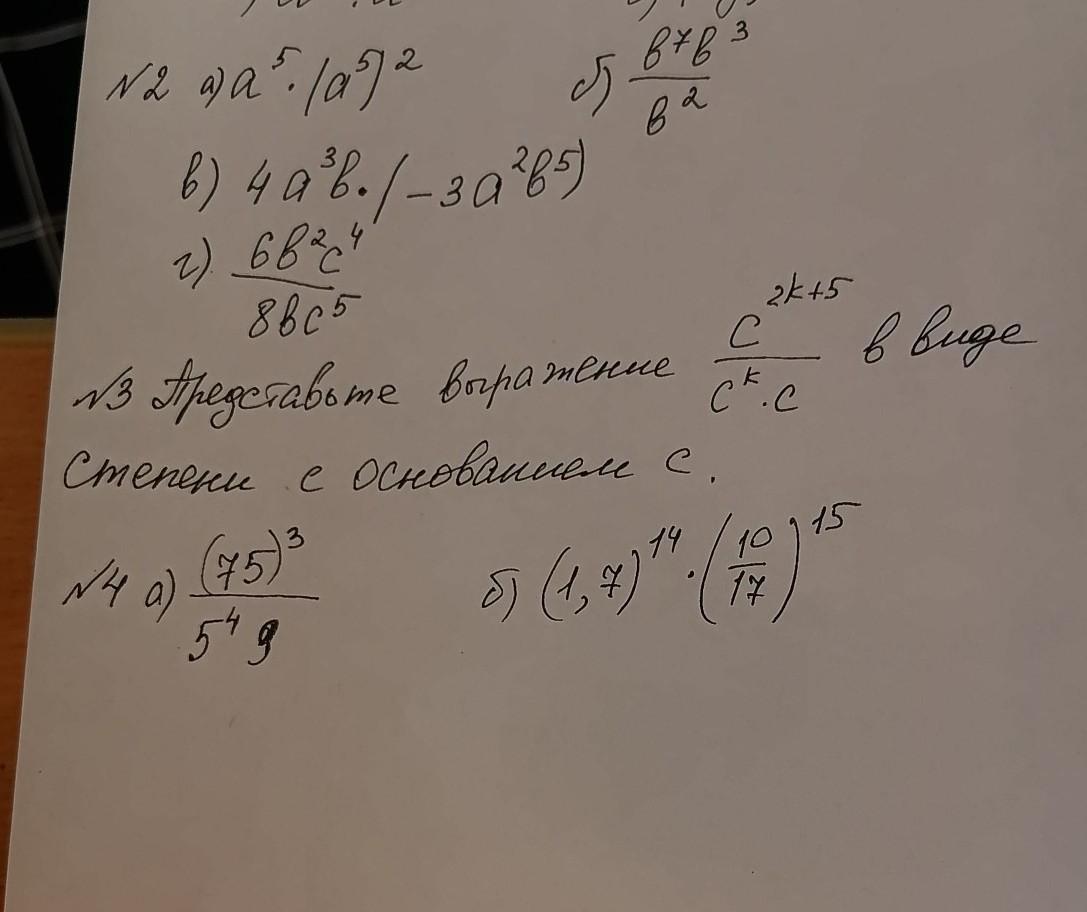 №2 а) a⁵·(a⁵)² б) b⁷b³/b²
в) 4a³b·(-3a²b⁵)
г) 6b²c⁴/8bc⁵
№3 Представьте выражение c²ᵏ⁺⁵/cᵏ·c в виде
степени с основанием c.
№4 а) (75)³/5⁴9 б) (1,7)¹⁴·(10/17)¹⁵